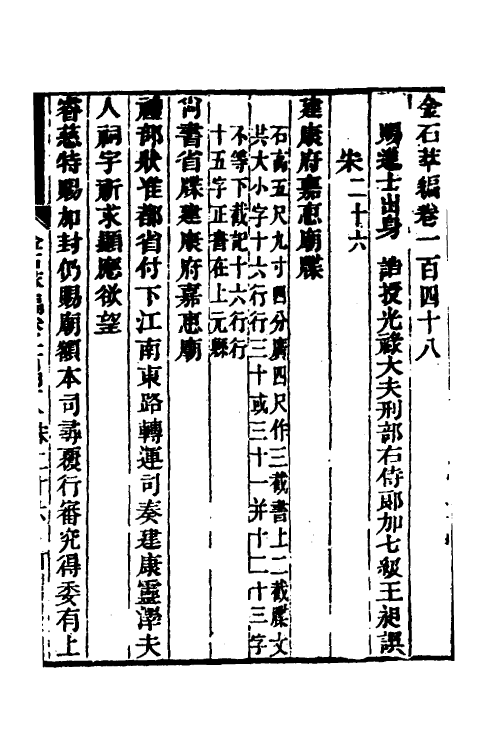 金石萃編卷一百四十八
賜進士出身　誥授光祿大夫刑部右侍郎加七級王昶譔
宋二十六
建康府嘉惠廟牒
石高五尺九寸四分廣四尺作三截書上二截牒文
共大小字十六行行三十或三十一并十二十三字
不等下截記十六行行
十五字正書在上元縣
尚書省牒建康府嘉惠廟
禮部狀准都省付下江南東路轉運司奏建康靈澤夫
人祠宇祈求顯應欲望
睿慈特賜加封仍賜廟額本司尋覆行審究得委有上